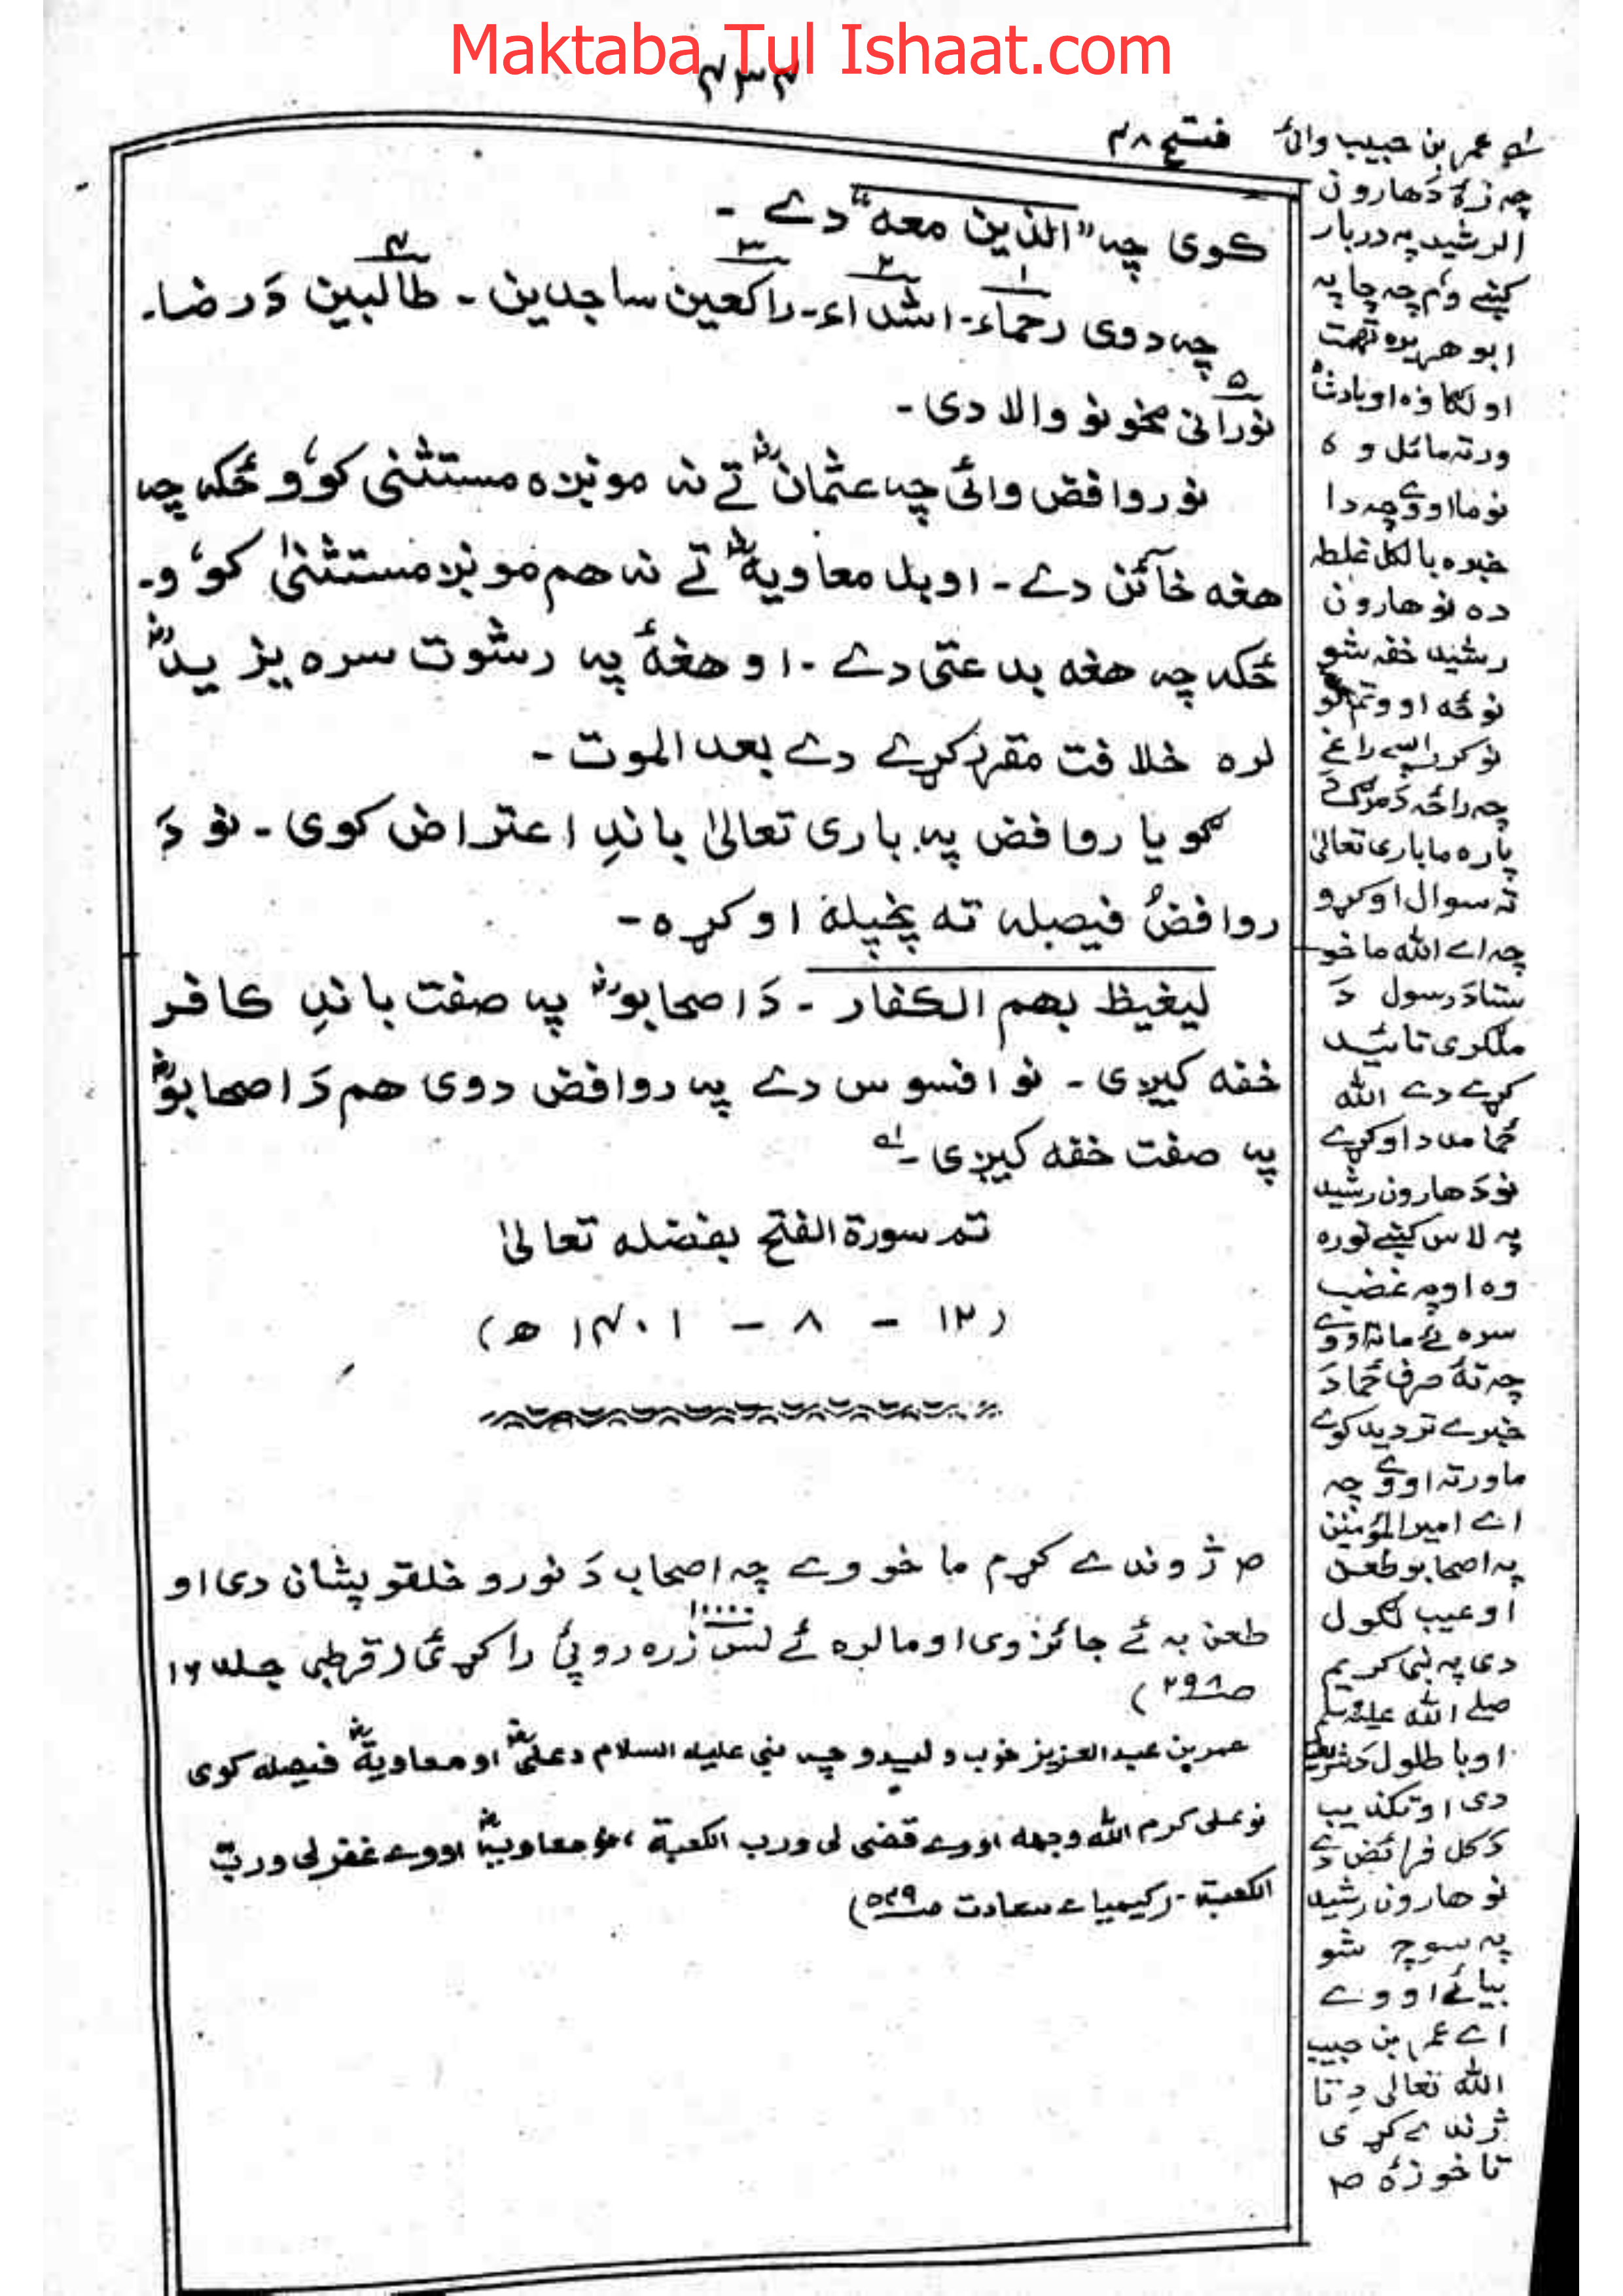 Maktaba Tul Ishaat.com
۴۳۴
فتح ۴۸
کوی چہ "الذین معه" دے ۔
چہ دوی رحماء ۔ اشداء ۔ راکعین ساجدین ۔ طالبین دَ رضا ۔
۱ ۲ ۳ ۴
۵
نورانی مخونو والا دی ۔
نو روافض وائی چہ عثمانؓ تے نہ مونږہ مستثنی کوؤ ځکہ چہ
هغه خائن دے ۔ او بل معاویهؓ تے نہ هم مونږ مستثنیٰ کوؤ ۔
ځکہ چہ هغه بدعتی دے ۔ او هغهٔ پہ رشوت سره یزیدؓ
لره خلافت مقرر کړے دے بعد الموت ۔
گویا روافض پہ باری تعالیٰ باندِ اعتراض کوی ۔ نو دَ
روافض فیصلہ تہ پخپله اوکړه ۔
لیغیظ بهم الکفار ۔ دَ اصحابوؓ پہ صفت باندِ کافر
خفه کیږی ۔ نو افسوس دے پہ روافض دوی هم دَ اصحابوؓ
پہ صفت خفه کیږی ۔ لہ
تمـ سورة الفتح بفضله تعالیٰ
(۱۲ – ۸ – ۱۴۰۱ ھ)
ص ژوندے کړم ما خو وے چہ اصحاب دَ نورو خلقو پشان دی او
طعن بہ ئے جائز وی او ما لره ئے لس زره روپئ راکړئ (قرطبی جلد ۱۶
۱۰۰۰۰
صـ ۲۹۸)
عمر بن عبد العزیز خوب ولیدو چہ نبی علیه السلام دعلیؓ او معاویةؓ فیصله کوی
نو علی کرم الله وجهه اووے قضی لی ورب الکعبة ، نو معاویهؓ اووے غفر لی ورب
الکعبة ۔ (کیمیاء سعادت صـ ۵۴۹)
لہ عمر بن حبیب وائ
چہ زهٔ دَ هارون
الرشید پہ دربار
کښے وم چہ چا پہ
ابو هریره تهمت
او لگاوه او بادشاه
ورتہ مائل وه
نو ما اووے چہ دا
خبره بالکل غلطه
ده نو هارون
رشید خفه شو
نو ځہ اووتم کور
نوکر پسے راغے
چہ راځہ دَ مرگ دَ
پاره ما باری تعالیٰ
تہ سوال اوکړو
چہ اے الله ما خو
ستا دَ رسول دَ
ملگری تائید
کړے دے الله
ځما مدد اوکړے
نو دَ هارون رشید
پہ لاس کښے توره
وه او پہ غضب
سره ئے ما تہ اووے
چہ تهٔ صرف ځما دَ
خبرے تردید کوے
ما ورتہ اووے چہ
اے امیر المؤمنین
پہ اصحابو طعن
او عیب لگول
دی پہ نبی کریم
صلے الله علیه وسلم
او باطلول دَ شریعت
دی او تکذیب
دَ کل فرائض دے
نو هارون رشید
پہ سوچ شو
بیا ئے اووے
اے عمر بن حبیب
الله تعالی دِ تا
ژندے کړی
تا خو زهٔ ص